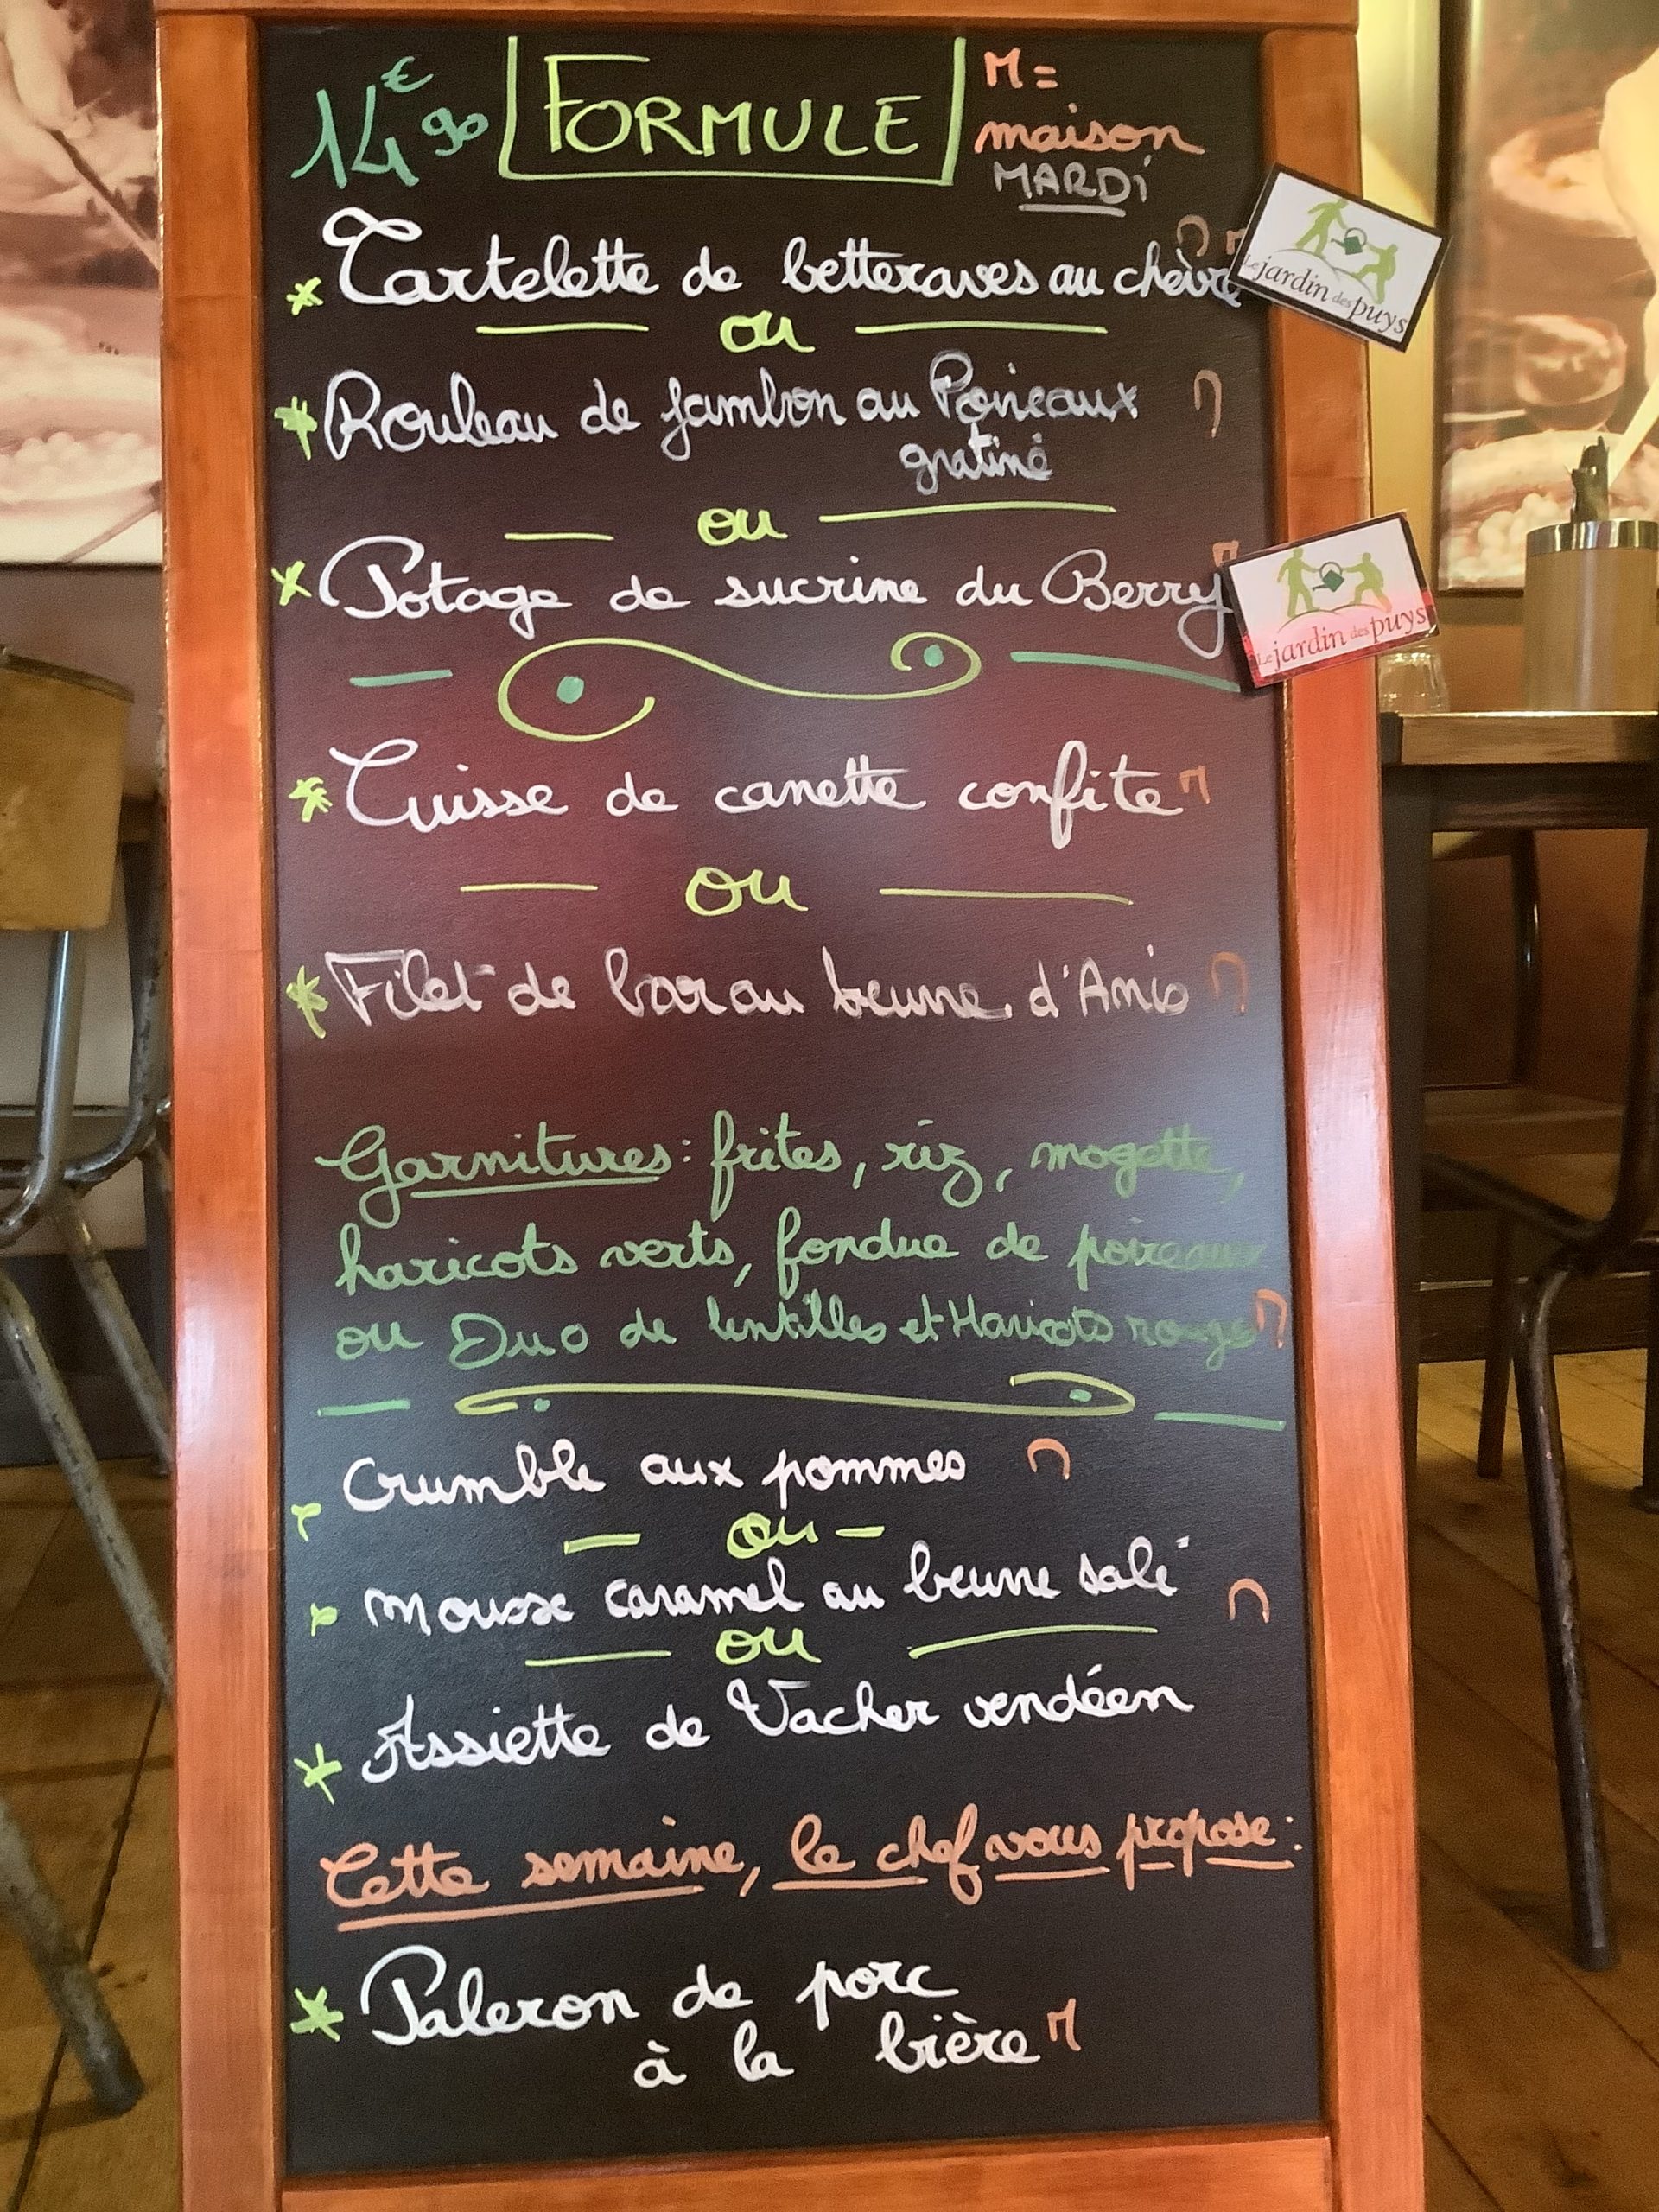 14€90 FORMULE M =
maison
MARDi
Tartelette de betteraves au chèvre M
ou
Rouleau de jambon au Poireaux M
gratiné
ou
Potage de sucrine du Berry M
Cuisse de canette confite M
ou
Filet de bar au beurre d'Anis M
Garnitures : frites, riz, mogette,
haricots verts, fondue de poireaux
ou Duo de lentilles et Haricots rouges M
Crumble aux pommes M
ou
Mousse caramel au beurre salé M
ou
Assiette de Vacher vendéen
Cette semaine, le chef vous propose :
Paleron de porc
à la bière M
Le jardin des puys
Le jardin des puys